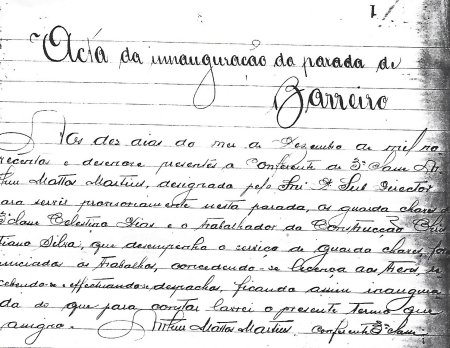 1
Acta da innauguração da parada de
Barreiro
Aos dez dias do mez de Dezembro de mil no
vecentos e dezenove presentes o Conferente de 3ª classe Ar
thur Mattos Martins, designado pelo Snr. Dr. Director
para servir provisoriamente nesta parada, os guarda chaves
3ª classe Celestino Dias e o trabalhador da Construcção
tiano Silva, que desempenha o serviço de guarda chaves, for
nunciados os trabalhos, concedendo-se licença aos trens, re
cebendo-e effectuando-se despachos, ficando assim inaugura
da do que para constar lavrei o presente termo que
assigno. Arthur Mattos Martins, conferente 3ª classe